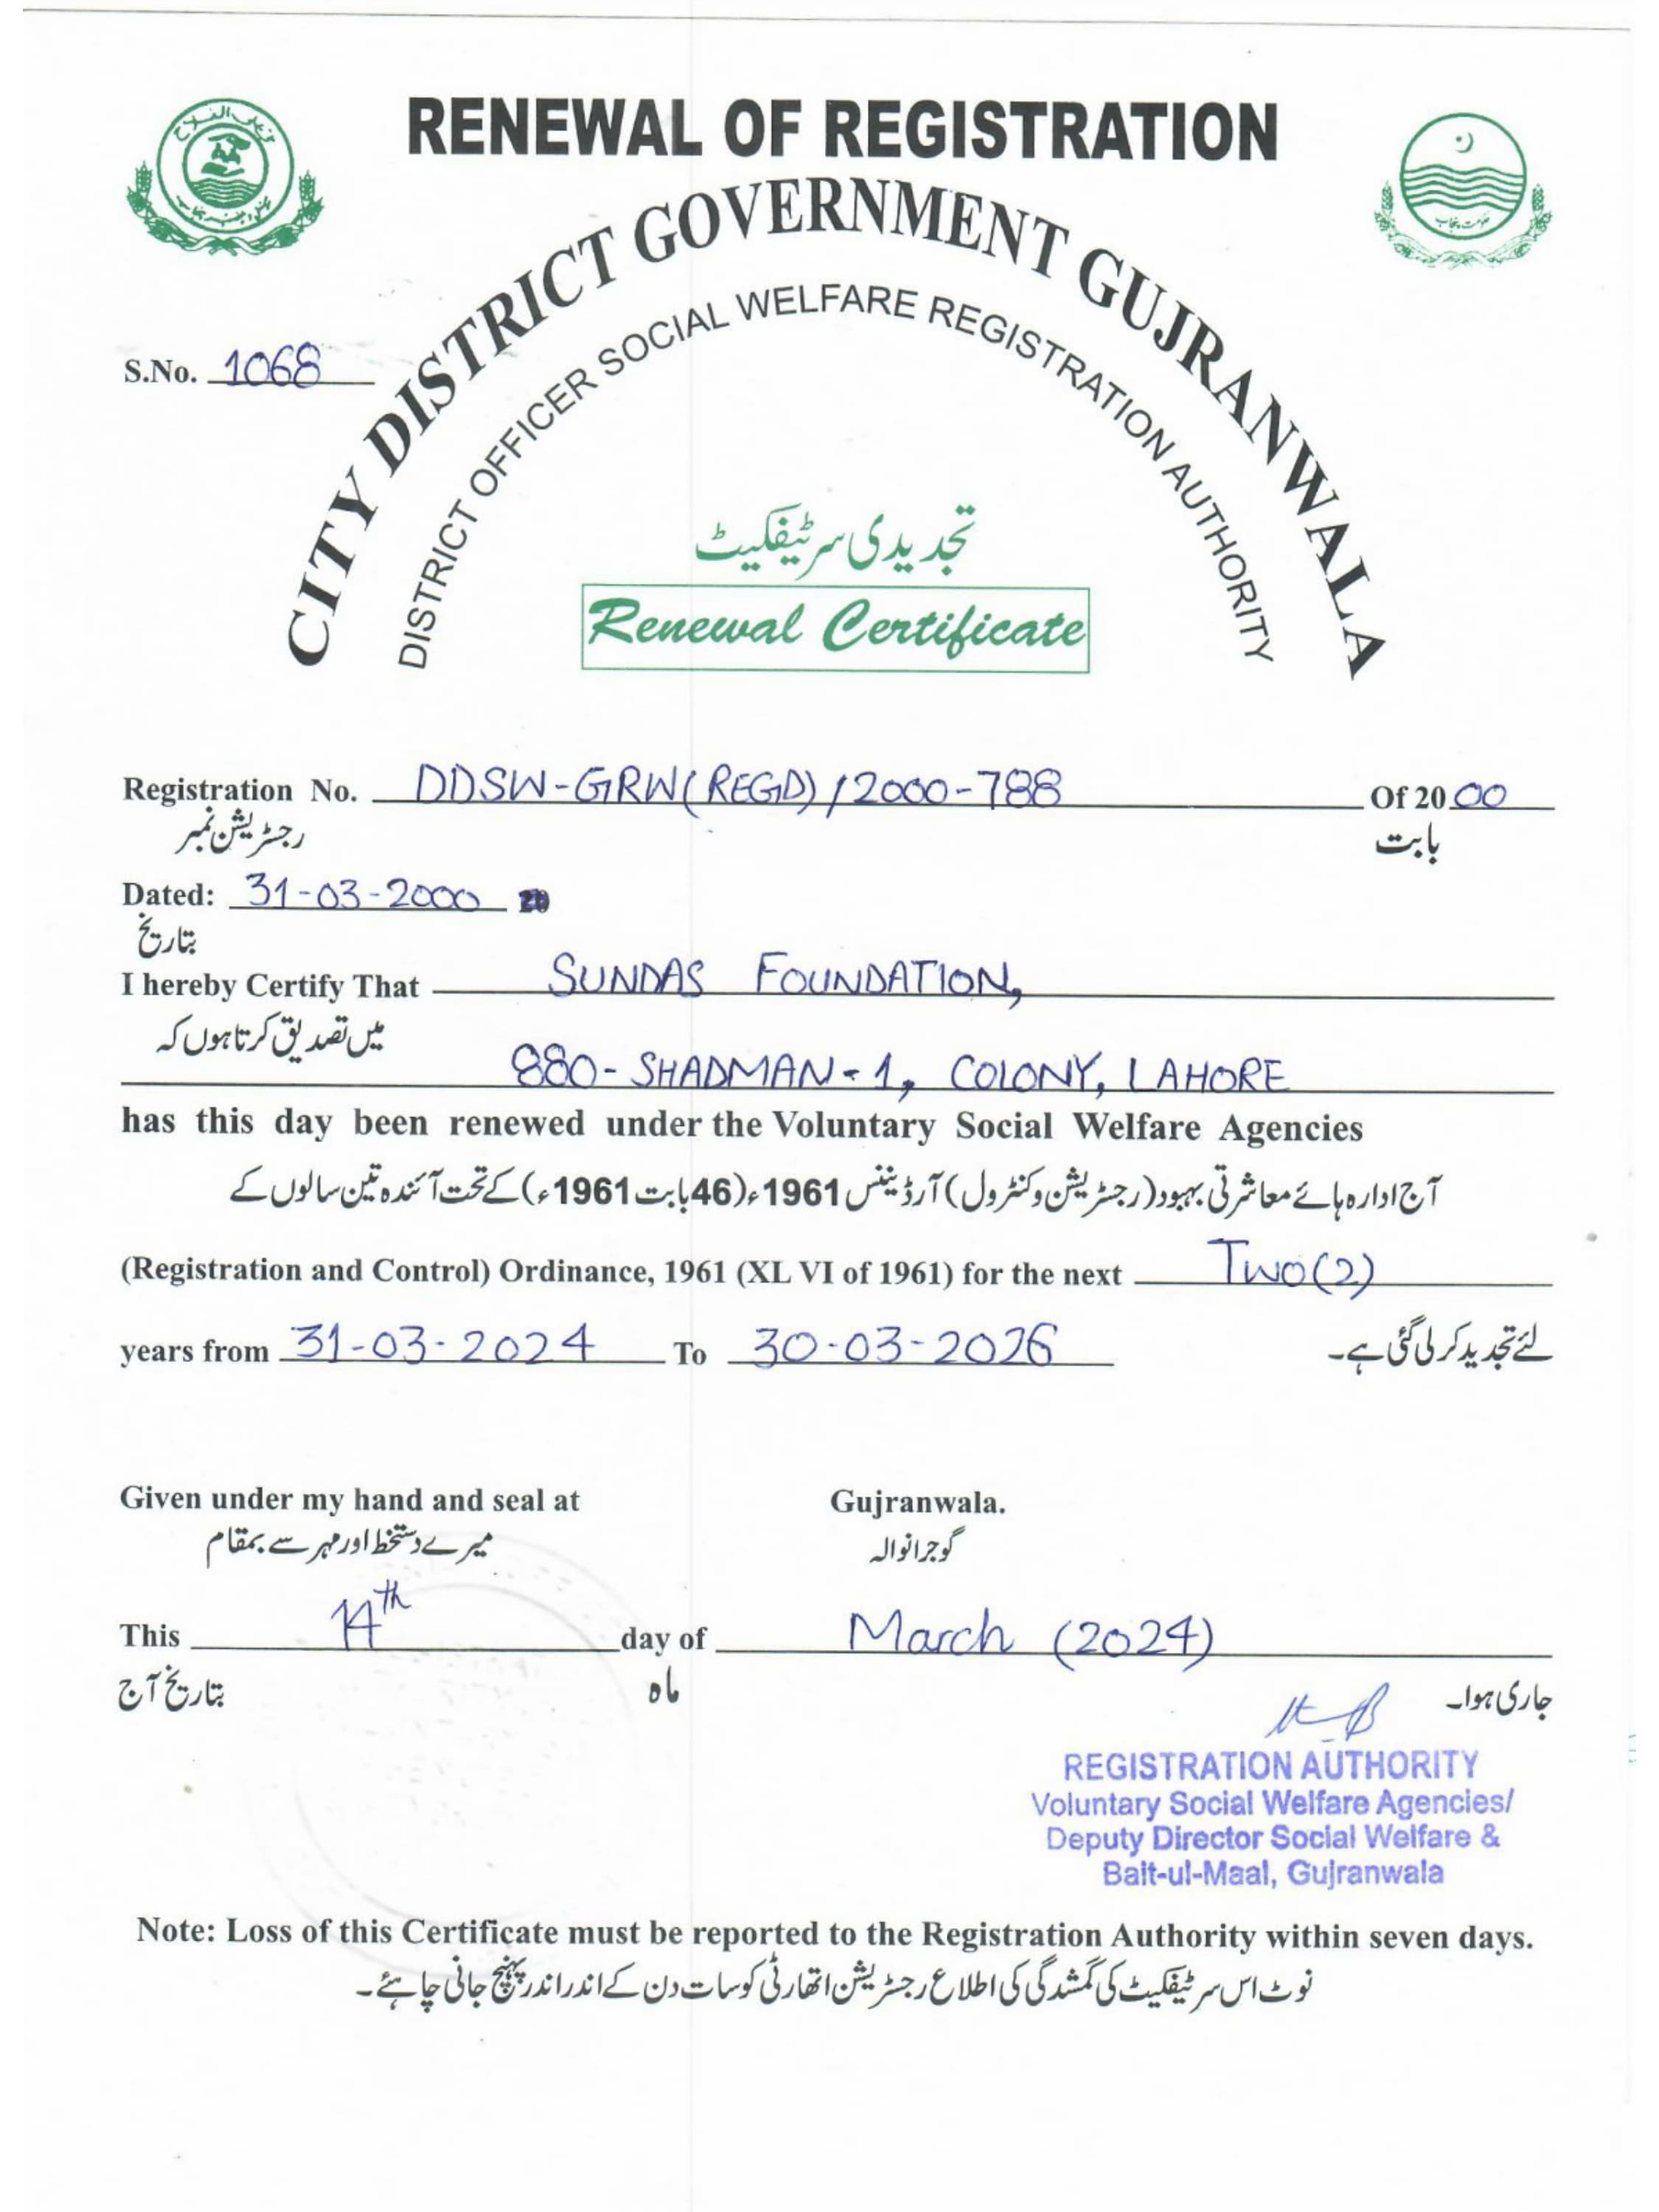 RENEWAL OF REGISTRATION
CITY DISTRICT GOVERNMENT GUJRANWALA
DISTRICT OFFICER SOCIAL WELFARE REGISTRATION AUTHORITY
S.No. 1068
تجدیدی سرٹیفکیٹ
Renewal Certificate
Registration No. DDSW-GRW(REGD)/2000-788 Of 2000
رجسٹریشن نمبر بابت
Dated: 31-03-2000 20
بتاریخ
I hereby Certify That SUNDAS FOUNDATION,
میں تصدیق کرتا ہوں کہ
880-SHADMAN-1, COLONY, LAHORE
has this day been renewed under the Voluntary Social Welfare Agencies
آج ادارہ ہائے معاشرتی بہبود (رجسٹریشن وکنٹرول) آرڈیننس 1961ء (46 بابت 1961ء) کے تحت آئندہ تین سالوں کے
(Registration and Control) Ordinance, 1961 (XL VI of 1961) for the next Two(2)
years from 31-03-2024 To 30-03-2026 لئے تجدید کر لی گئی ہے۔
Given under my hand and seal at Gujranwala.
میرے دستخط اور مہر سے بمقام گوجرانوالہ
This 14th day of March (2024)
بتاریخ آج ماہ جاری ہوا۔
REGISTRATION AUTHORITY
Voluntary Social Welfare Agencies/
Deputy Director Social Welfare &
Bait-ul-Maal, Gujranwala
Note: Loss of this Certificate must be reported to the Registration Authority within seven days.
نوٹ اس سرٹیفکیٹ کی گمشدگی کی اطلاع رجسٹریشن اتھارٹی کو سات دن کے اندر اندر پہنچ جانی چاہئے۔